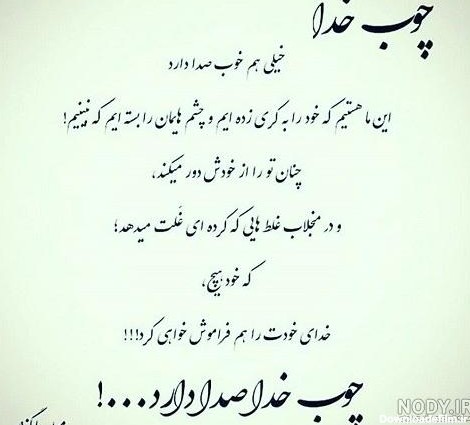 چوب خدا
خیلی هم خوب صدا دارد
این ما هستیم که خود را به کری زده ایم و چشم هایمان را بسته ایم که نبینیم!
چنان تو را از خودش دور میکند،
و در منجلاب غلط هایی که کرده ای غَلت میدهد؛
که خود هیچ،
خدای خودت را هم فراموش خواهی کرد!!!
چوب خدا صدا دارد...!
NODY.IR